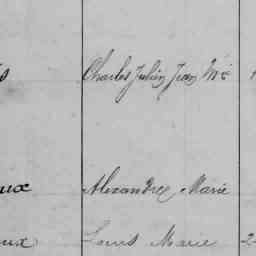 Charles Julien Jean Me
aux Alexandre Marie
aux Louis Marie 2